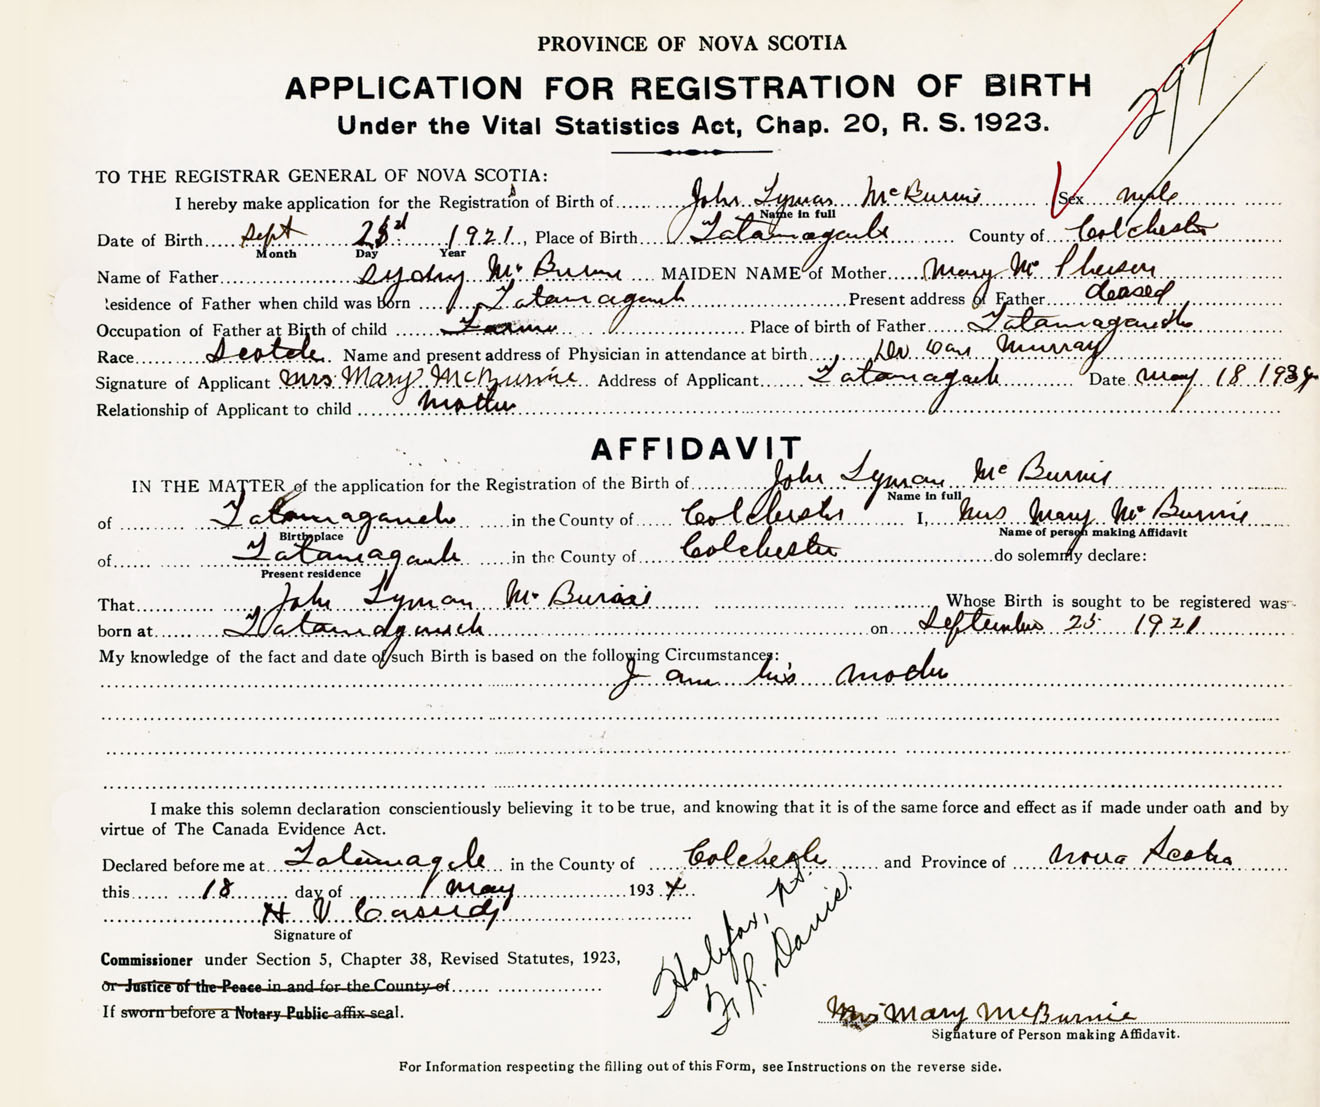 297
PROVINCE OF NOVA SCOTIA
APPLICATION FOR REGISTRATION OF BIRTH
Under the Vital Statistics Act, Chap. 20, R. S. 1923.
TO THE REGISTRAR GENERAL OF NOVA SCOTIA:
I hereby make application for the Registration of Birth of John Lyman McBurnie Sex male
Name in full
Date of Birth Sept 1921, Place of Birth Tatamagouche County of Colchester
Month Day Year
Name of Father Sydny Mc Burnie MAIDEN NAME of Mother Mary Mc Pherson
Residence of Father when child was born Tatamagouch Present address of Father deased
Occupation of Father at Birth of child Farmer Place of birth of Father Tatamagouche
Race Scotch Name and present address of Physician in attendance at birth Dr Dan Murray
Signature of Applicant Mrs Mary McBurnie Address of Applicant Tatamagouch Date May 18 1934
Relationship of Applicant to child Mother
AFFIDAVIT
IN THE MATTER of the application for the Registration of the Birth of John Lyman Mc Burnie
Name in full
of Tatamagouche in the County of Colchester I, Mrs Mary Mc Burnie
Birthplace Name of person making Affidavit
of Tatamagouch in the County of Colchester do solemnly declare:
Present residence
That John Lyman Mc Burnie Whose Birth is sought to be registered was
born at Tatamagouch on September 23 1921
My knowledge of the fact and date of such Birth is based on the following Circumstances:
I am his mother
I make this solemn declaration conscientiously believing it to be true, and knowing that it is of the same force and effect as if made under oath and by
virtue of The Canada Evidence Act.
Declared before me at in the County of Colchester and Province of Nova Scotia
this 18 day of May 1934
H V Cassidy
Signature of
Commissioner under Section 5, Chapter 38, Revised Statutes, 1923,
or Justice of the Peace in and for the County of
If sworn before a Notary Public affix seal.
Halifax, N.S.
F. R. Davis.
Mrs Mary McBurnie
Signature of Person making Affidavit.
For Information respecting the filling out of this Form, see Instructions on the reverse side.